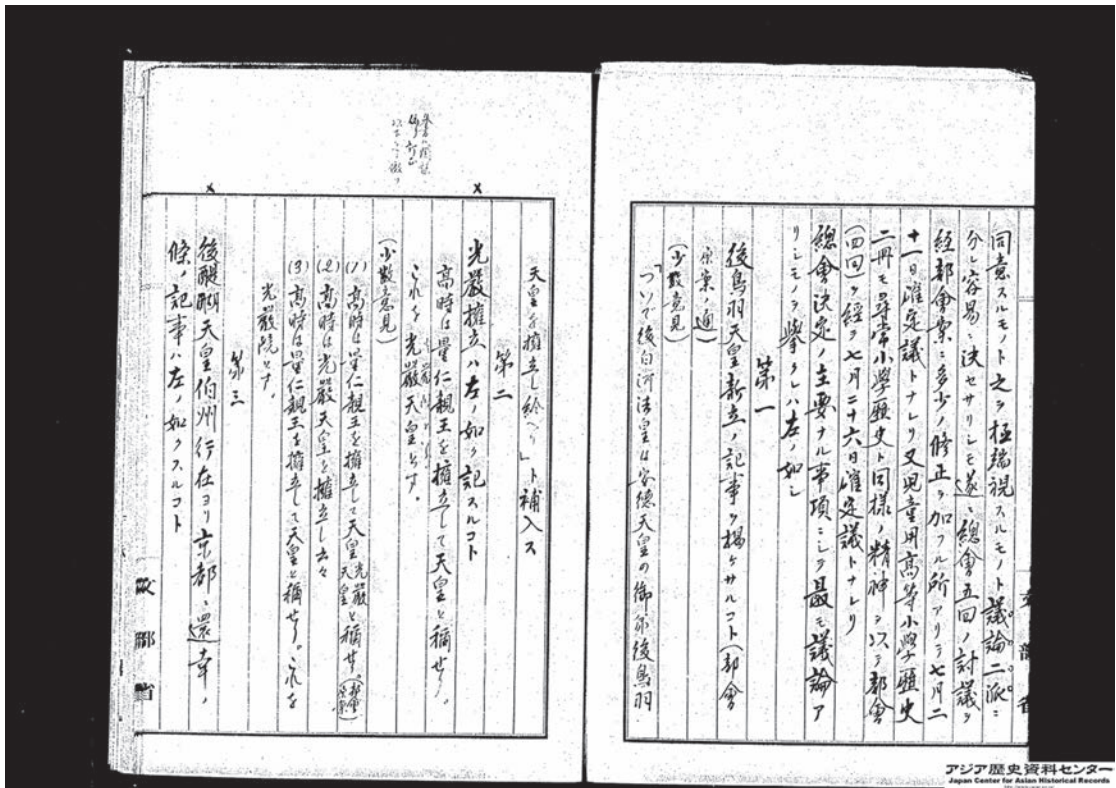 同意スルモノト之ヲ極端視スルモノト議論二派ニ
分レ容易ニ決セサリシモ遂ニ總會五回ノ討議ヲ
経部會案ニ多少ノ修正ヲ加フル所アリテ七月二
十一日確定議トナレリ又児童用高等小學歴史
二冊モ尋常小學歴史ト同様ノ精神ヲ以テ部會
(四回)ヲ経テ七月二十六日確定議トナレリ
總會決定ノ主要ナル事項ニシテ最モ議論ア
リシモノヲ挙クレハ左ノ如シ
第一
後鳥羽天皇新立ノ記事ヲ掲ケサルコト(部會
原案ノ通)
(少数意見)
「ついで後白河法皇は安徳天皇の御弟後鳥羽
文部省
天皇を擁立し給へり」ト補入ス
第二
光嚴擁立ハ左ノ如ク記スルコト
高時は量仁親王を擁立して天皇と稱せり。
これを光嚴天皇とす。
(少数意見)
(1) 高時は量仁親王を擁立して天皇光嚴天皇と稱せり。(部會原案)
(2) 高時は光嚴天皇を擁立し云々
(3) 高時は量仁親王を擁立して天皇と稱せり。これを
光嚴院とす。
第三
後醍醐天皇伯州行在ヨリ京都ニ還幸ノ
條ノ記事ハ左ノ如クスルコト
文部省
アジア歴史資料センター
Japan Center for Asian Historical Records